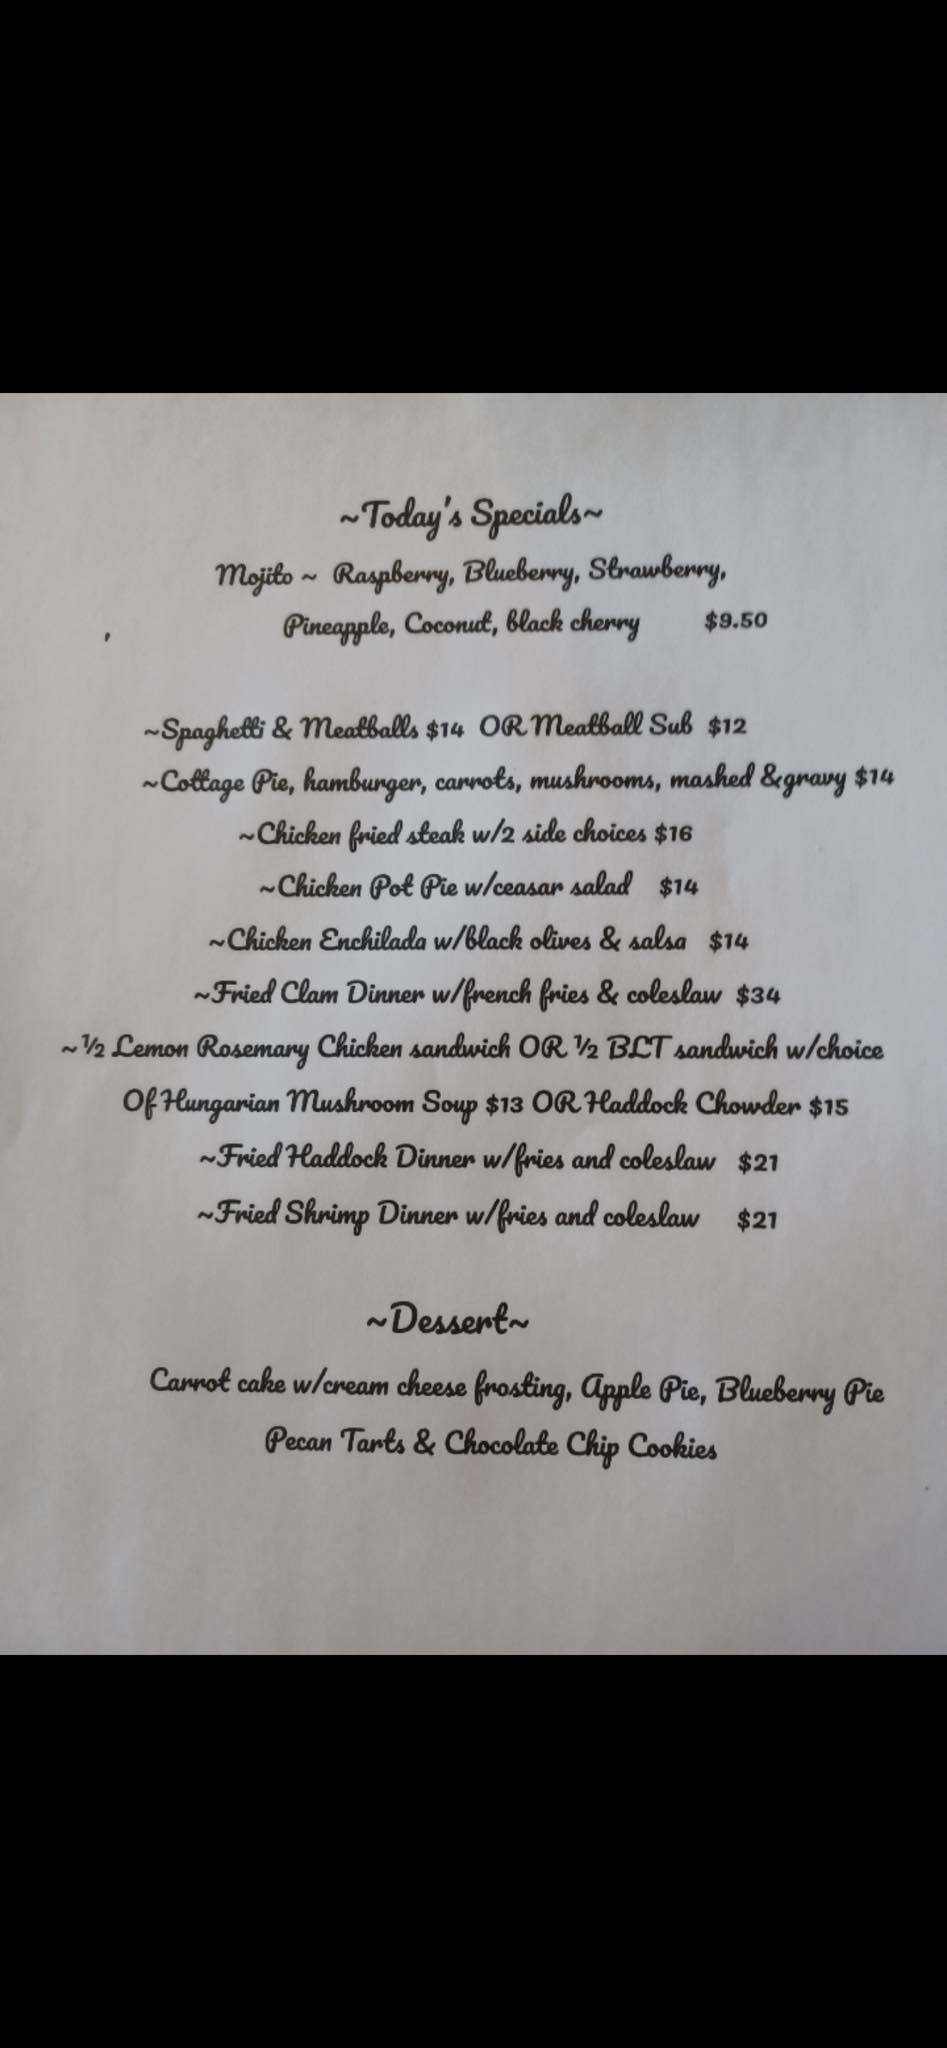 ~Today's Specials~
Mojito ~ Raspberry, Blueberry, Strawberry,
Pineapple, Coconut, black cherry $9.50
~Spaghetti & Meatballs $14 OR Meatball Sub $12
~Cottage Pie, hamburger, carrots, mushrooms, mashed &gravy $14
~Chicken fried steak w/2 side choices $16
~Chicken Pot Pie w/ceasar salad $14
~Chicken Enchilada w/black olives & salsa $14
~Fried Clam Dinner w/french fries & coleslaw $34
~½ Lemon Rosemary Chicken sandwich OR ½ BLT sandwich w/choice
Of Hungarian Mushroom Soup $13 OR Haddock Chowder $15
~Fried Haddock Dinner w/fries and coleslaw $21
~Fried Shrimp Dinner w/fries and coleslaw $21
~Dessert~
Carrot cake w/cream cheese frosting, Apple Pie, Blueberry Pie
Pecan Tarts & Chocolate Chip Cookies